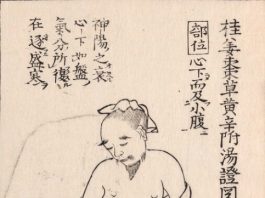 桂姜棗草黄辛附湯證図
部位 心下而及小腹
神陽之衰
心下如盤
氣分所復
在逐盛寒